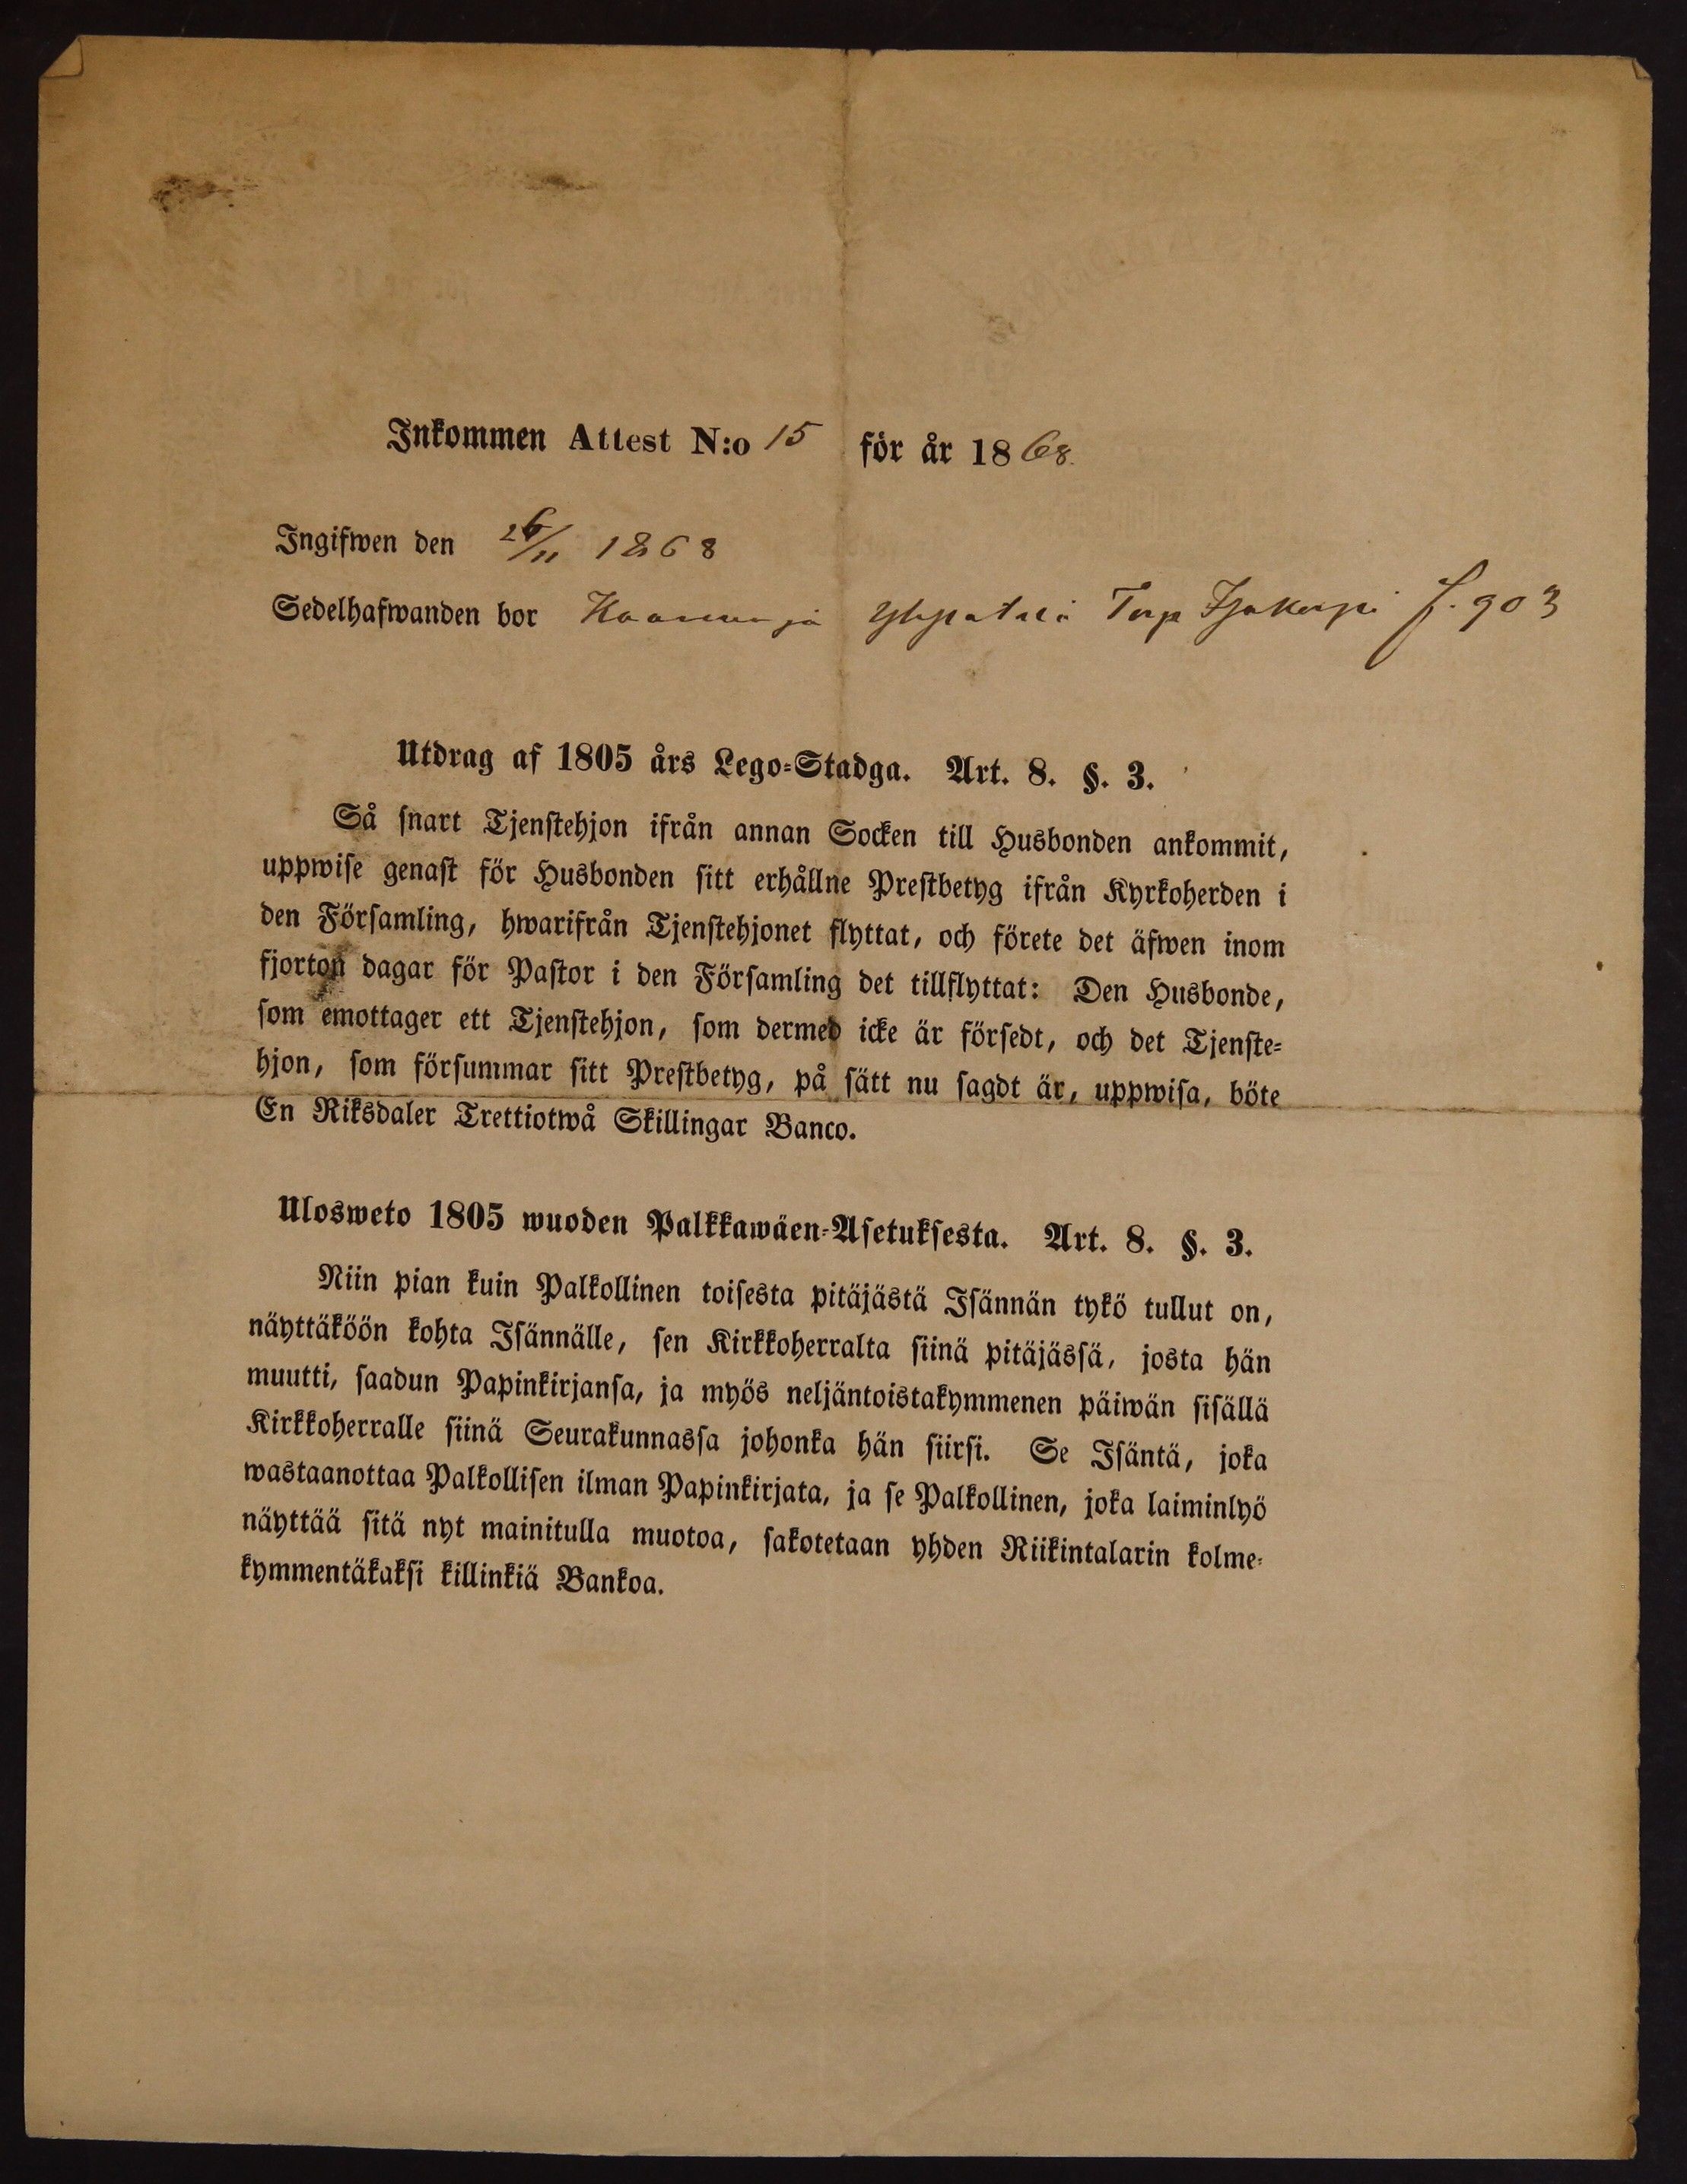 Inkommen Attest N:o 15 för år 1868.
Ingifwen den 26/11 1868
Sedelhafwanden bor Torp f. 903
Utdrag af 1805 års Lego-Stadga. Art. 8. §. 3.
Så snart Tjenstehjon ifrån annan Socken till Husbonden ankommit,
uppwise genast för Husbonden sitt erhållne Prestbetyg ifrån Kyrkoherden i
den Församling, hwarifrån Tjenstehjonet flyttat, och förete det äfwen inom
fjorton dagar för Pastor i den Församling det tillflyttat: Den Husbonde,
som emottager ett Tjenstehjon, som dermed icke är försedt, och det Tjenste-
hjon, som försummar sitt Prestbetyg, på sätt nu sagdt är, uppwisa, böte
En Riksdaler Trettiotwå Skillingar Banco.
Ulosweto 1805 wuoden Palkkawäen-Asetuksesta. Art. 8. §. 3.
Niin pian kuin Palkollinen toisesta pitäjästä Isännän tykö tullut on,
näyttäköön kohta Isännälle, sen Kirkkoherralta siinä pitäjässä, josta hän
muutti, saadun Papinkirjansa, ja myös neljäntoistakymmenen päiwän sisällä
Kirkkoherralle siinä Seurakunnassa johonka hän siirsi. Se Isäntä, joka
wastaanottaa Palkollisen ilman Papinkirjata, ja se Palkollinen, joka laiminlyö
näyttää sitä nyt mainitulla muotoa, sakotetaan yhden Riikintalarin kolme-
kymmentäkaksi killinkiä Bankoa.